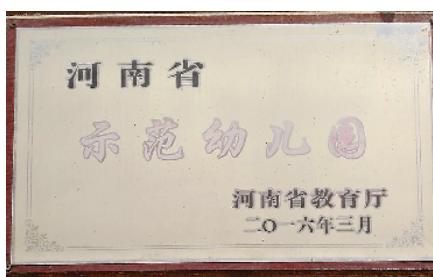 河南省
示范幼儿园
河南省教育厅
二〇一六年三月